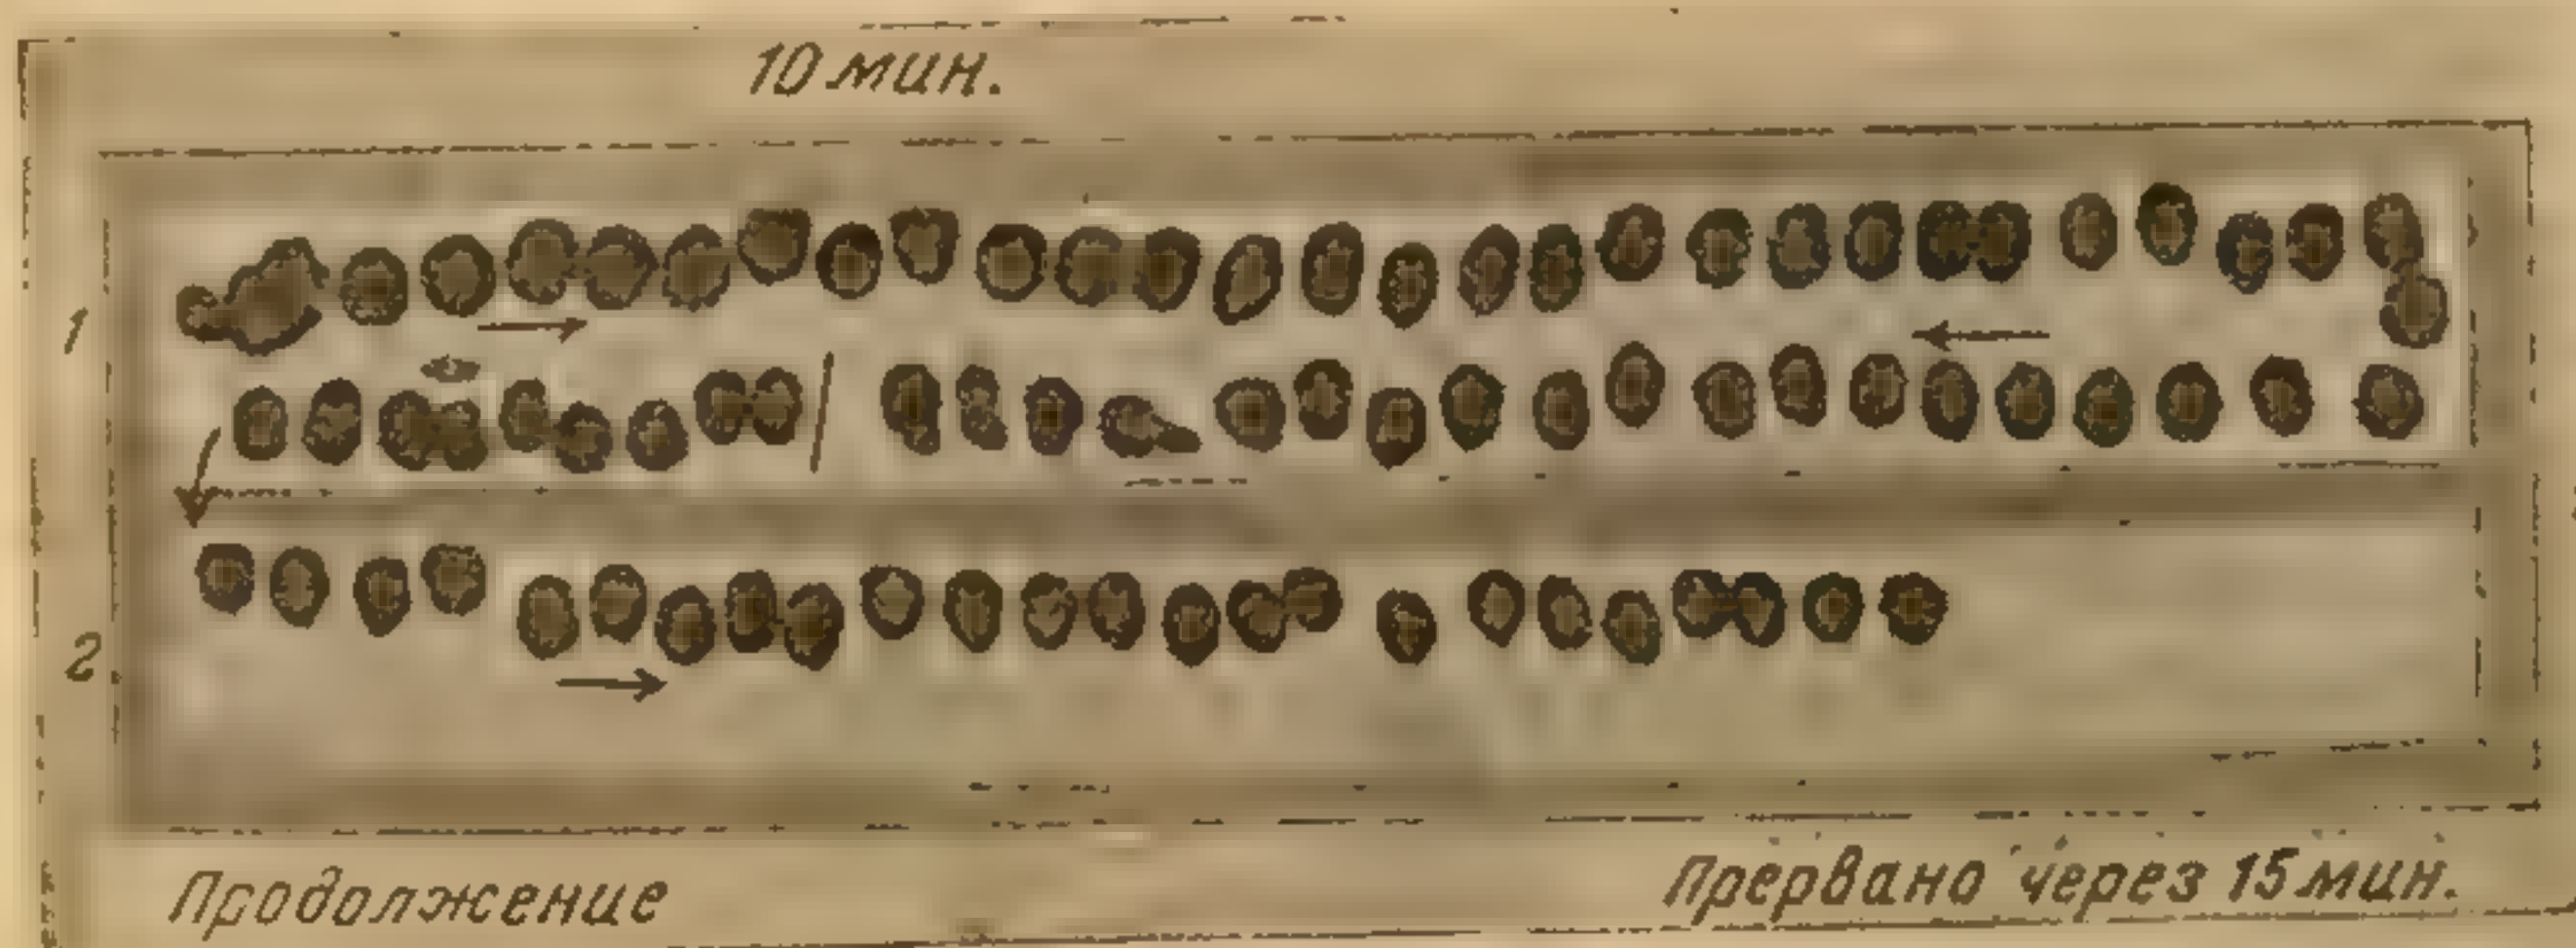 10 мин.
1
2
Продолжение
Прервано через 15 мин.